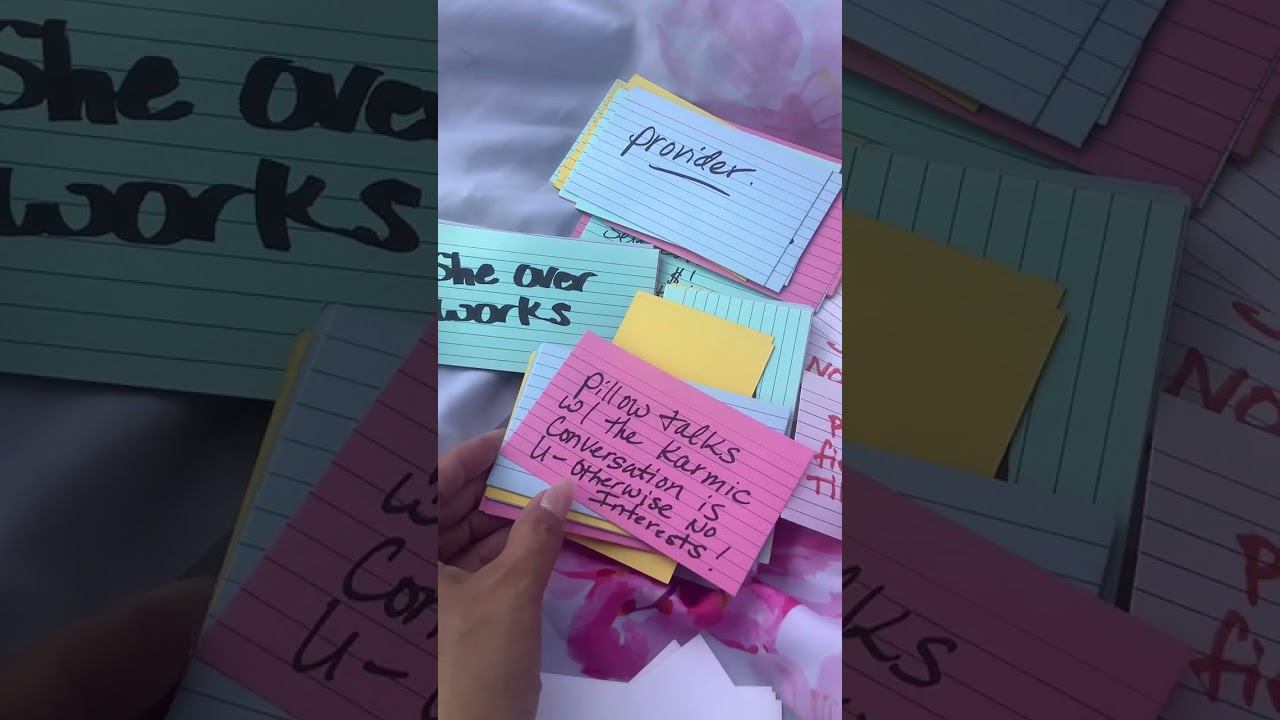 provider.
$!
She over
works
NO
Pillow talks
w/ the Karmic
Conversation is
U- Otherwise No
Interests!
She over
works
w
Con
U-
lks
NO
P